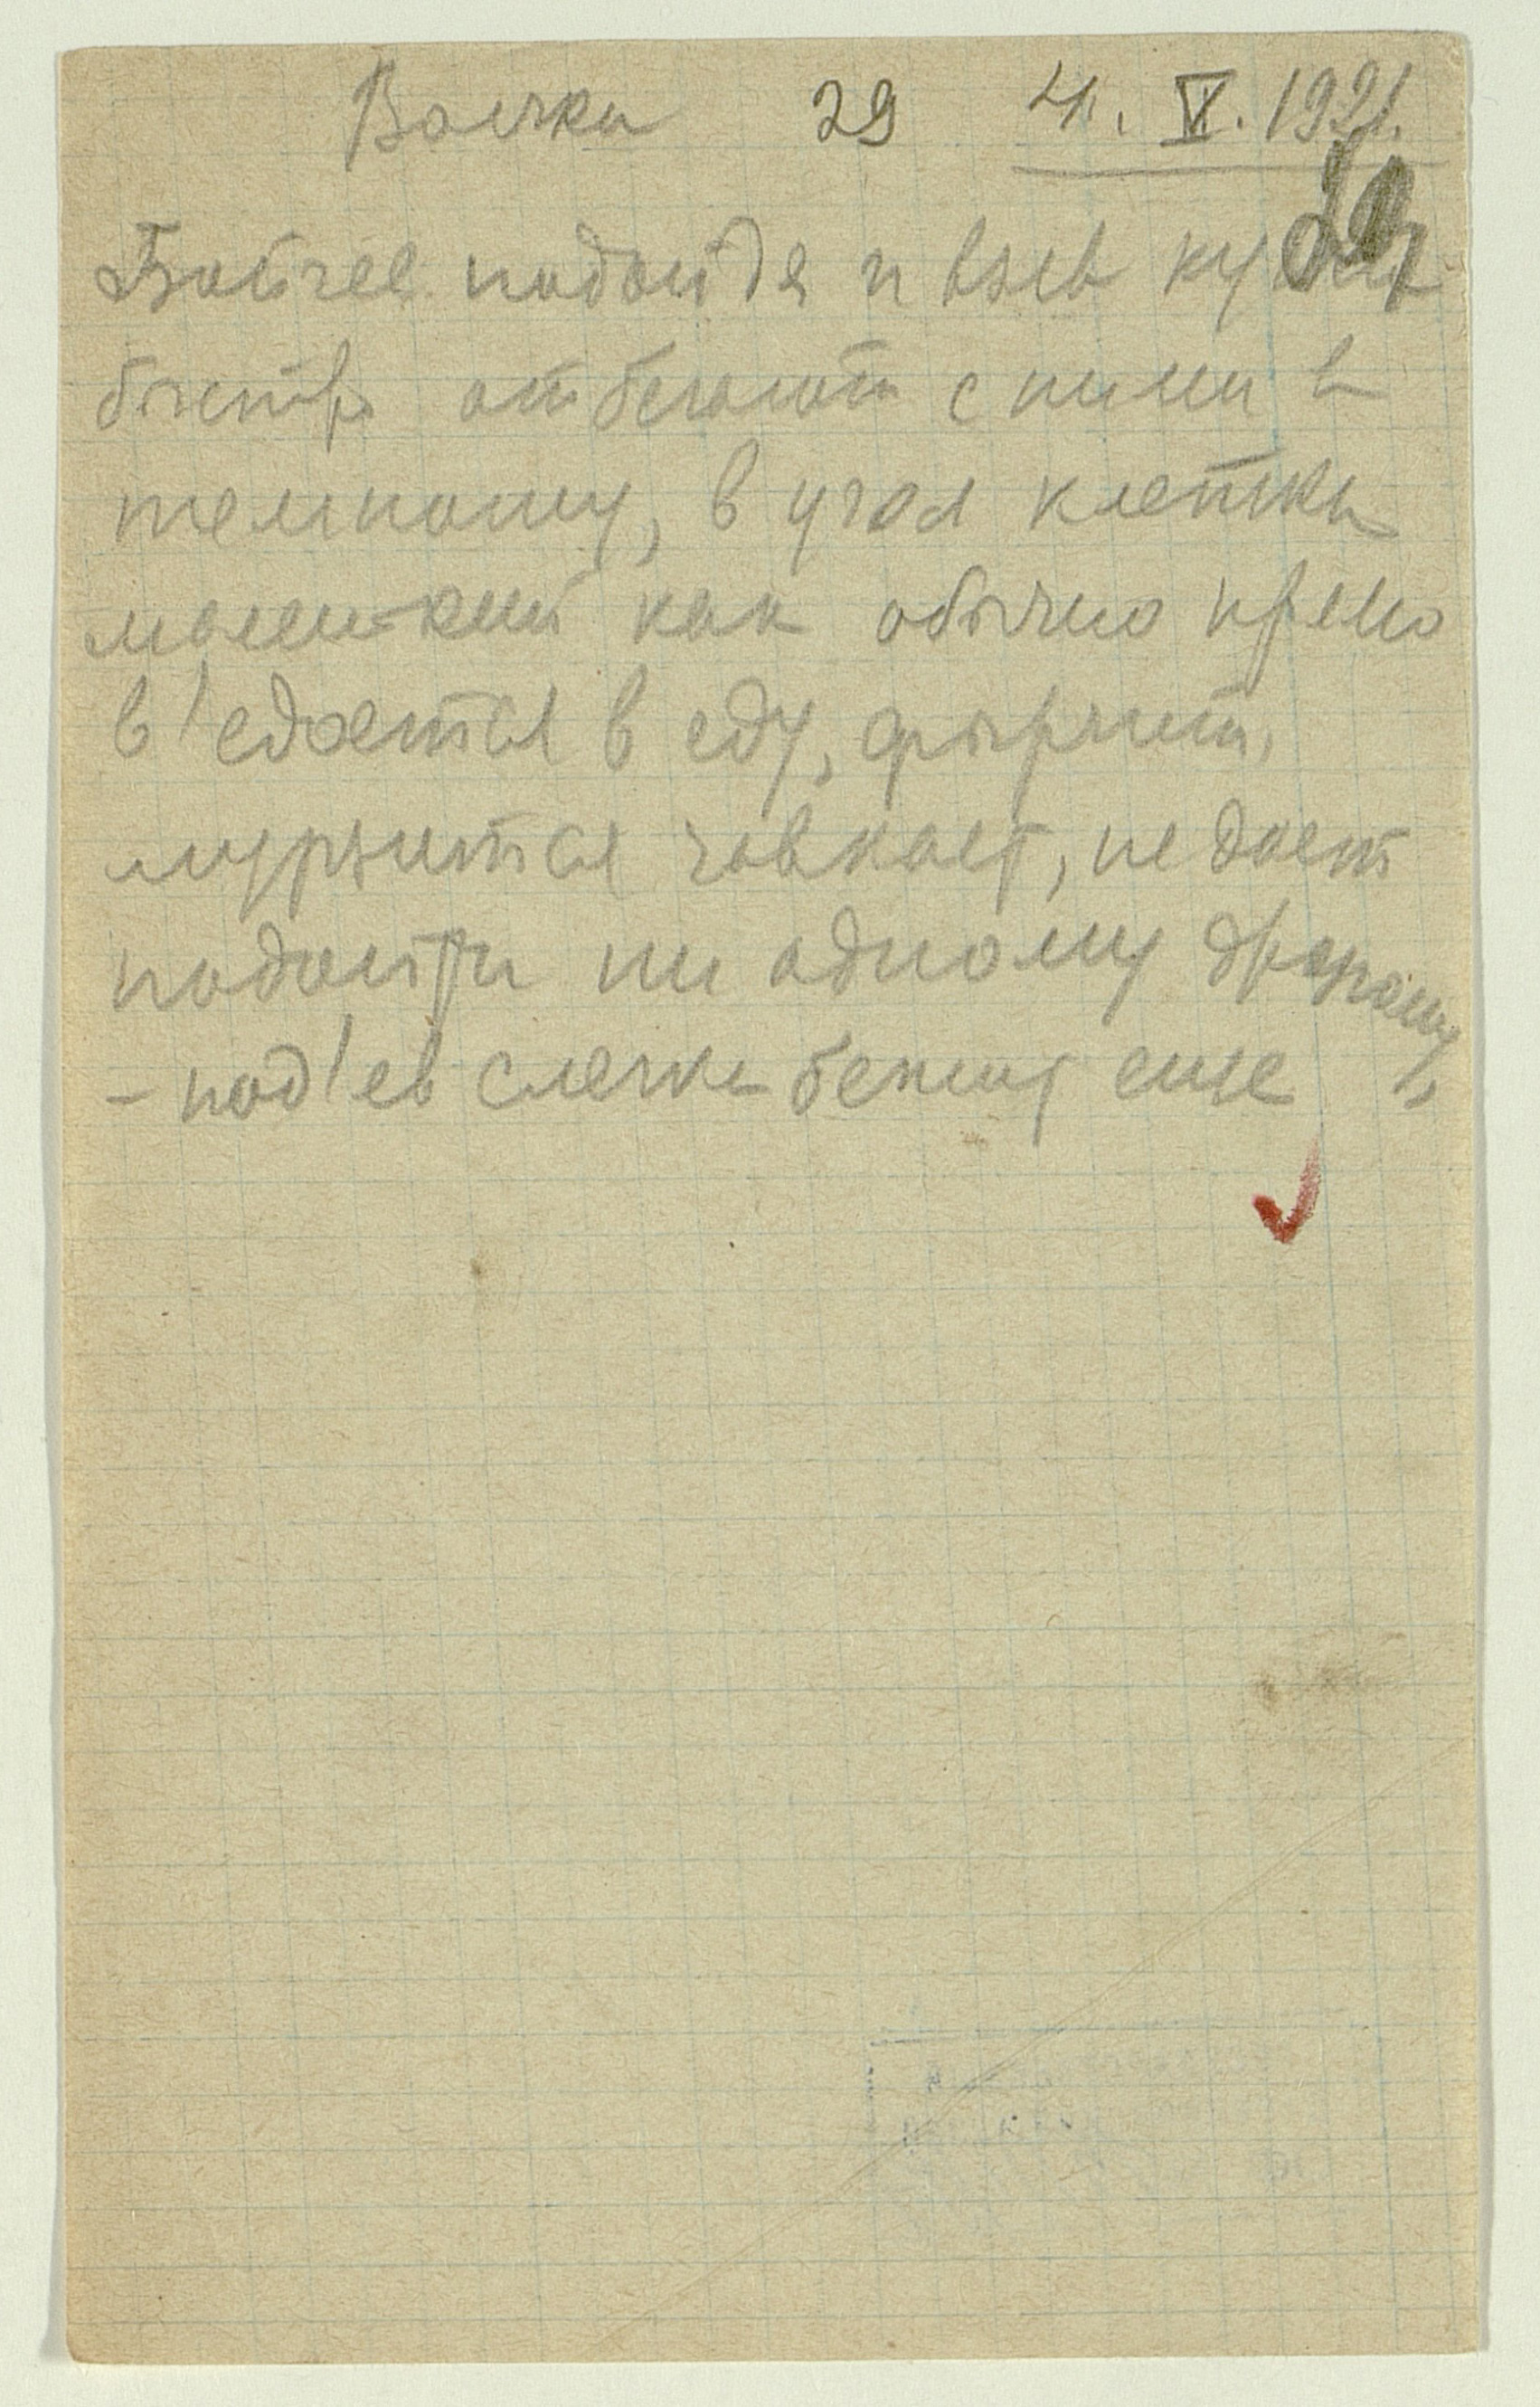 Волчки 29 4. V. 1921.
Бойчее подойдя и взяв
быстро отбегают с ними в
темноту, в угол клетки
маленький как обычно прямо
в'едается в еду, фырчит,
чавкает, не дает
подойти ни одному другому
- под'ев слегка бежит еще